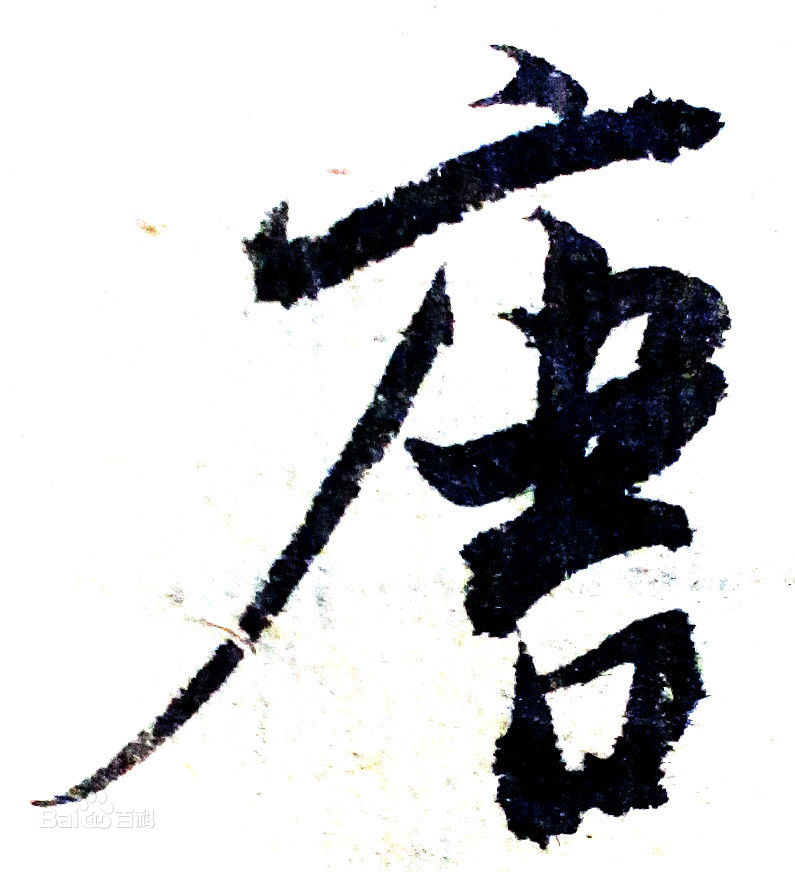 唐
Bai百科